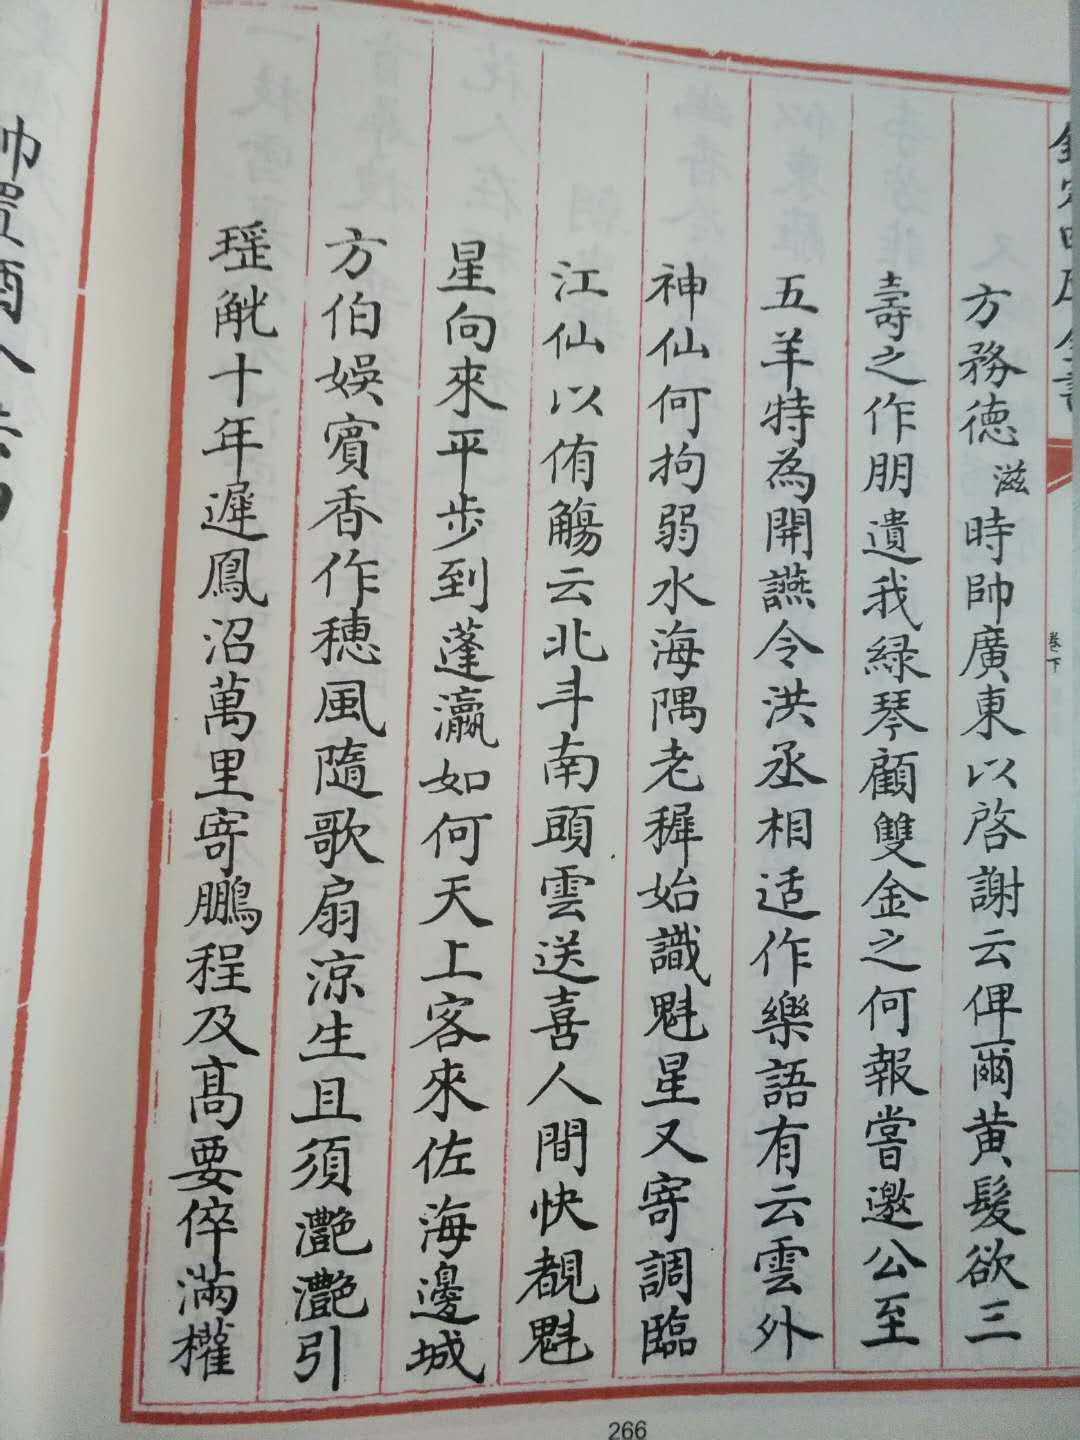 卷下
方務德滋時帥廣東以啓謝云俾爾黃髮欲三
壽之作朋遺我緑琴顧雙金之何報嘗邀公至
五羊特為開讌令洪丞相适作樂語有云雲外
神仙何拘弱水海隅老穉始識魁星又寄調臨
江仙以侑觴云北斗南頭雲送喜人間快覩魁
星向來平步到蓬瀛如何天上客來佐海邊城
方伯娛賓香作穗風隨歌扇凉生且須灧灧引
瑶觥十年遲鳳沼萬里寄鵬程及髙要倅滿權
266